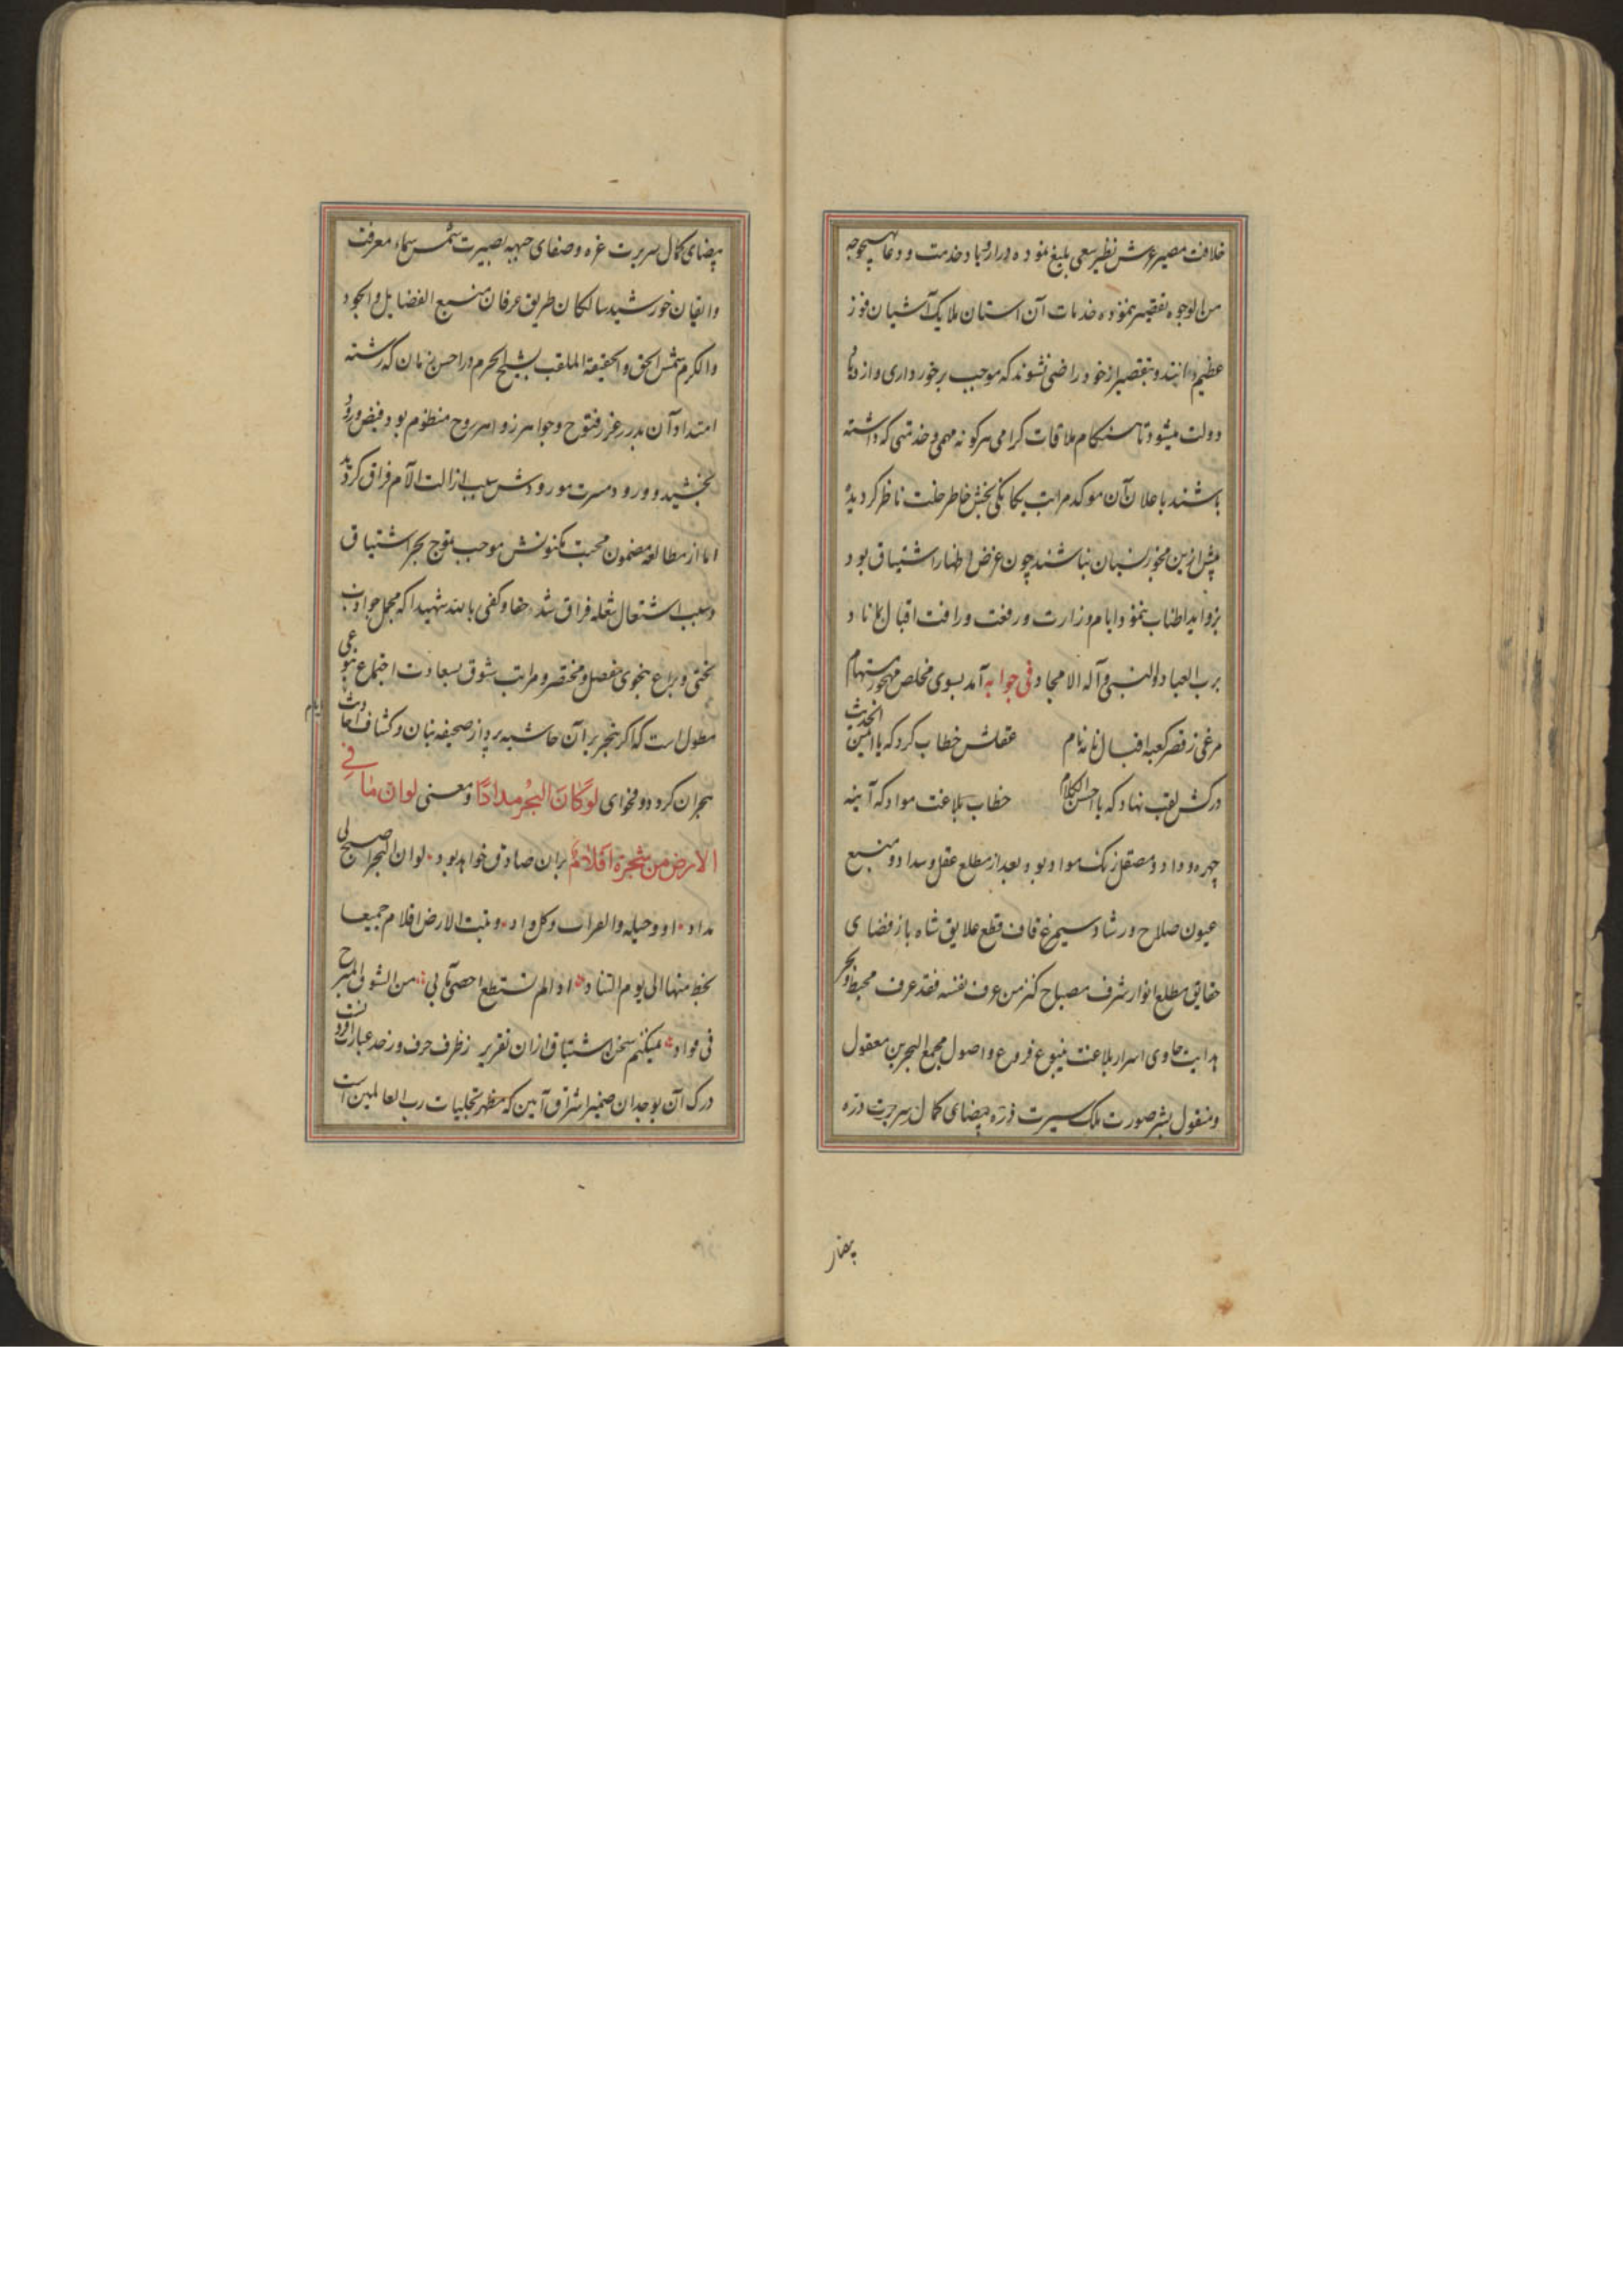 خلافت مصیر عرش نظیر سعی بلیغ نموده در ازدیاد خدمت و دعا بهیچوجه
من الوجوه تقصیر ننموده خدمات آن استان ملایک آشیان فوز
عظیم دانند و بتقصیر از خود راضی نشوند که موجب برخورداری و ازدیاد
دولت میشود تا هنکام ملاقات کرامی هرکونه مهمی و خدمتی که داشته
باشند باعلان آن موکد مراتب یکانکی بخش خاطر خلت ناظر کردیده
پیش ازین مخبور نسیان نباشند چون غرض اظهار اشتیاق بود
بزواید اطناب ننمود ایام وزارت و رفعت و رافت اقبال بماناد
برب العباد والنبی و آله الامجاد فی جوابه آمد بسوی مخلص مهجور مستهام
مرغی ز قصر کعبه اقبال نامه نام عقلش خطاب کرد که یا احسن الحدیث
درکش لقب نهاد که یا احسن الکلام خطاب بلاغت مواد که آینه
چهره وداد و مصقل زنک مواد بود بعد از مطلع عقل و سداد و منبع
عیون صلاح و رشاد سیمرغ قاف قطع علایق شاه باز فضای
حقایق مطلع انوار شرف مصباح کنز من عرف نفسه فقد عرف محیط و بحر
هدایت حاوی اسرار بلاغت ینبوع فروع و اصول مجمع البحرین معقول
و منقول بشر صورت ملک سیرت ذره بیضای کمال سریرت دره
بیضای
بیضای کمال سریرت غره و صفای جبهه بصیرت شمس سماء معرفت
و ایقان خورشید سالکان طریق عرفان منبع الفضایل و الجود
و الکرم شمس الحق و الحقیقة الملقب بشیخ الحرم در احسن زمان که رشته
امتداد آن بدرر غرر فتوح و جواهر زواهر روح منظوم بود فیض ورود
بخشید و ورود مسرت مورودش سبب ازالت الآم فراق کردید
اما از مطالعه مضمون محبت مکنونش موجب تموج بحر اشتیاق
و سبب اشتعال شعله فراق شد حقا و کفی بالله شهیدا که مجمل جوادب
تختی و یراع بنحوی مفصل و مختصر و مراتب شوق بسعادت اجتماع بنوعی
مطول است که اکر بنجر بر آن حاشیه پرداز صحیفه بنان و کشاف احادیث ایام
هجران کردد و فحوای لوکان البحر مدادا و معنی لو ان ما فی
الارض من شجرة اقلام بران صادق خواهد بود لو ان البحر اصبح لی
مداد او دجیله والفرات و کل واد و نبت الارض اقلام جمیعا
بخط منها الی یوم التناد اذا لم نستطع احصی مآ بی من الشوق المبرح
فی فواد میکنم سخن اشتیاق ازان تقریر ز ظرف حرف و ز حد عبارت افزونست
درک آن بوجدان ضمیر اشراق آیین که مظهر تجلیات رب العالمین است